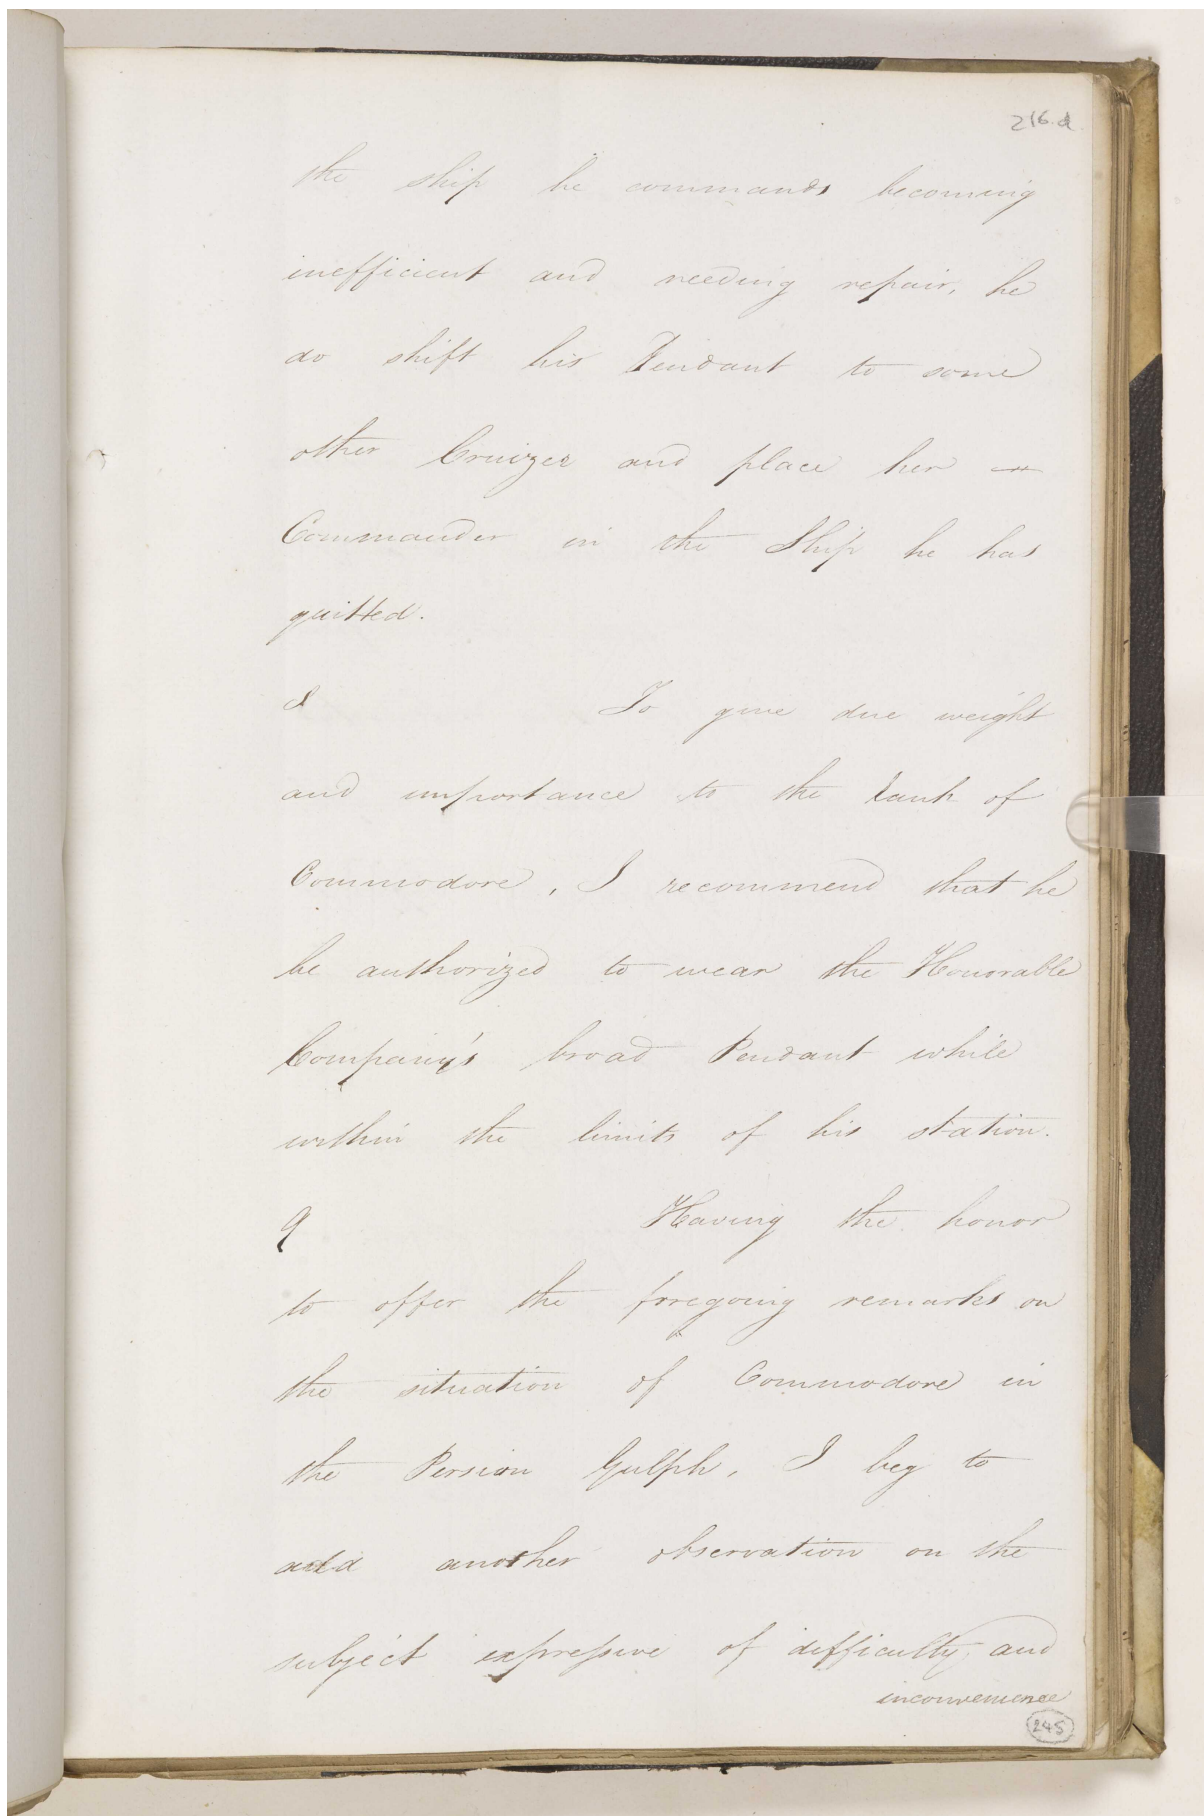 216.a
the ship he commands becoming
inefficient and needing repair, he
do shift his Pendant to some
other Cruizer and place her
Commander in the Ship he has
quitted.
8 To give due weight
and importance to the rank of
Commodore, I recommend that he
be authorized to wear the Honorable
Company's broad Pendant while
within the limits of his station.
9 Having the honor
to offer the foregoing remarks on
the situation of Commodore in
the Persian Gulph, I beg to
add another observation on the
subject expressive of difficulty and
inconvenience
245